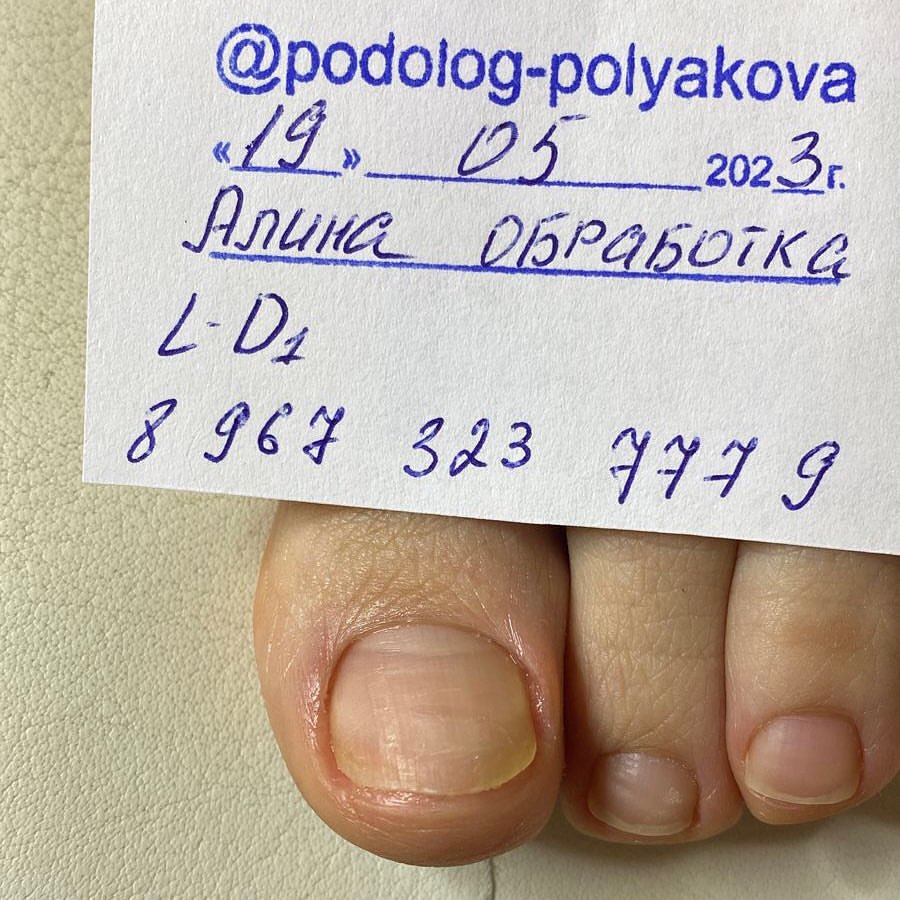 @podolog-polyakova
«19» 05 2023г.
Алина ОБРаБОТКа
L-D1
8 967 323 777 9